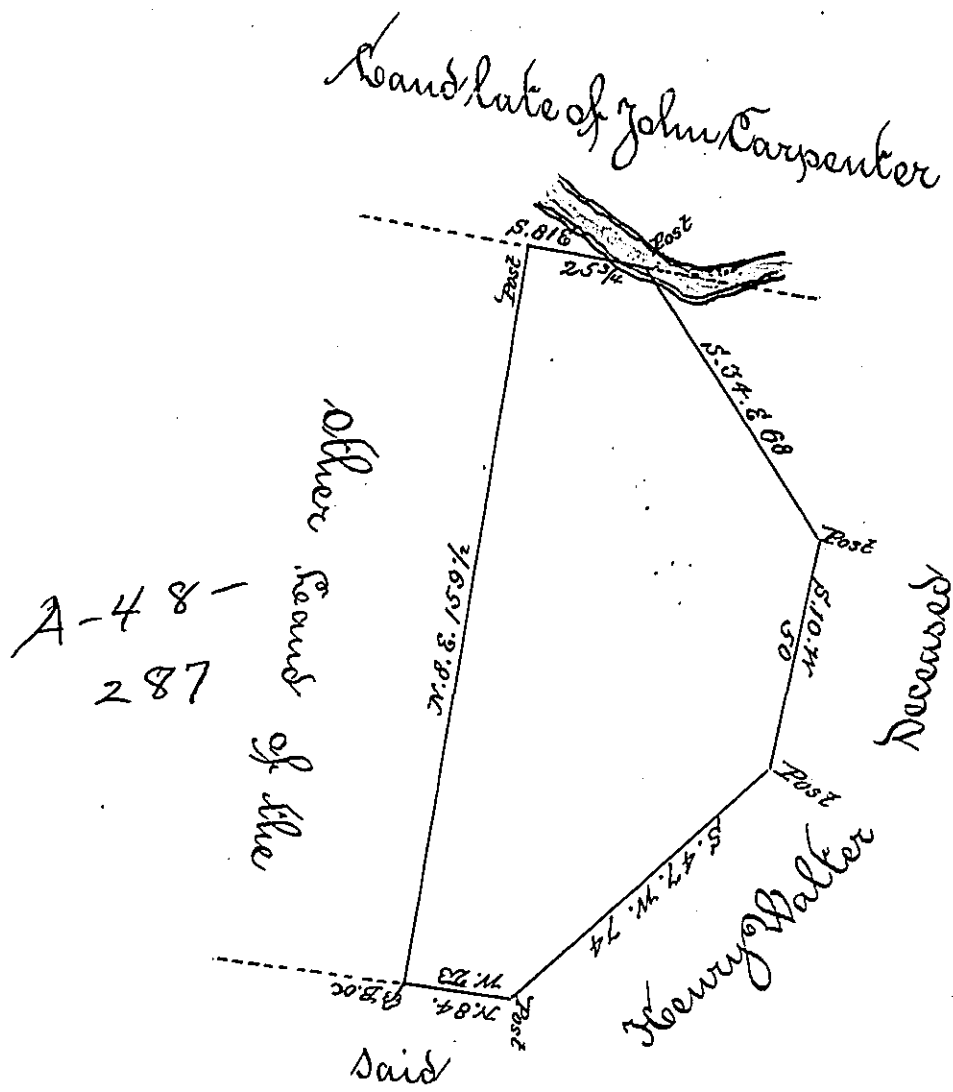 Land late of John Carpenter
S.81E
25 3/4
Post
Post
S.34.E 68
Post
S.10.W
50
Post
S.47.W. 74
Post
N.84.
W.23
B.B.OC
N.8.E. 159 1/2
other Land of the
said
Henry Walter
Deceased
A-48-
287